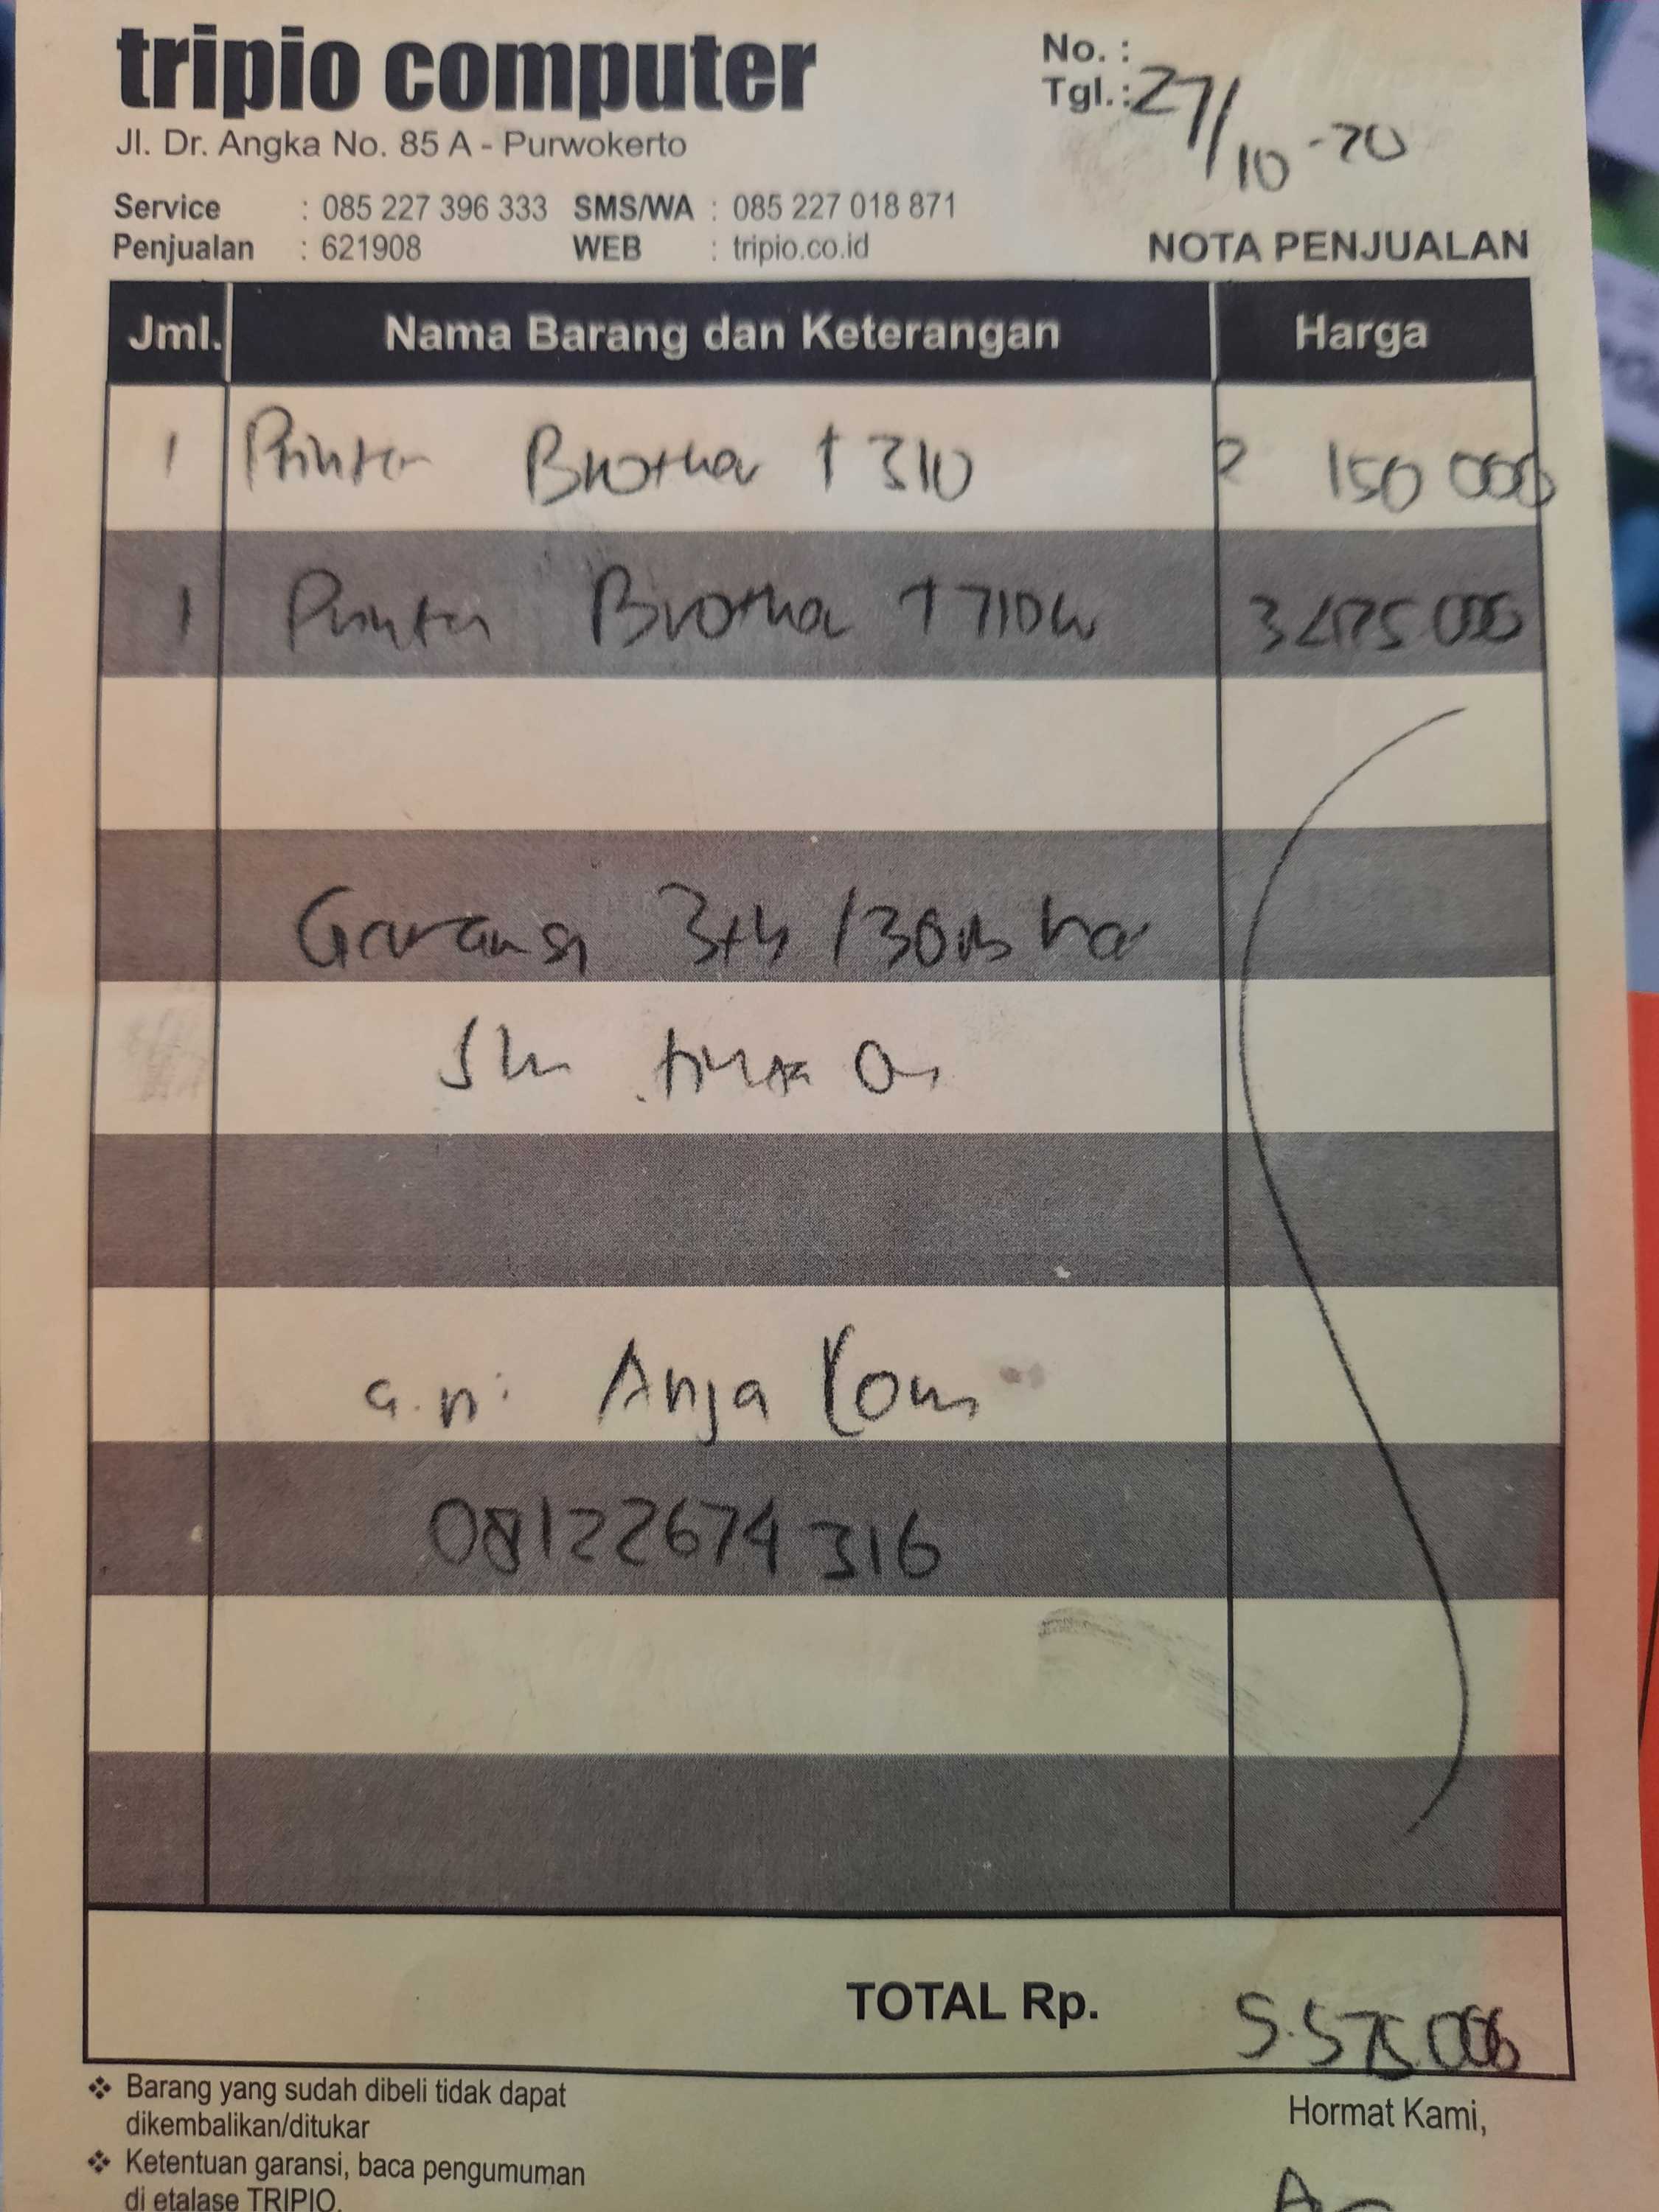 tripio computer
Jl. Dr. Angka No. 85 A - Purwokerto
No. :
Tgl. : 27/10-20
Service : 085 227 396 333 SMS/WA : 085 227 018 871
Penjualan : 621908 WEB : tripio.co.id
NOTA PENJUALAN
Jml. Nama Barang dan Keterangan Harga
1 Printer Brother T310 2 150 000
1 Printer Brother T710w 3425 000
Garansi 3th / 30rb
a.n: Anja Kom
08122674316
TOTAL Rp. 5.575.000
❖ Barang yang sudah dibeli tidak dapat
dikembalikan/ditukar
❖ Ketentuan garansi, baca pengumuman
di etalase TRIPIO.
Hormat Kami,